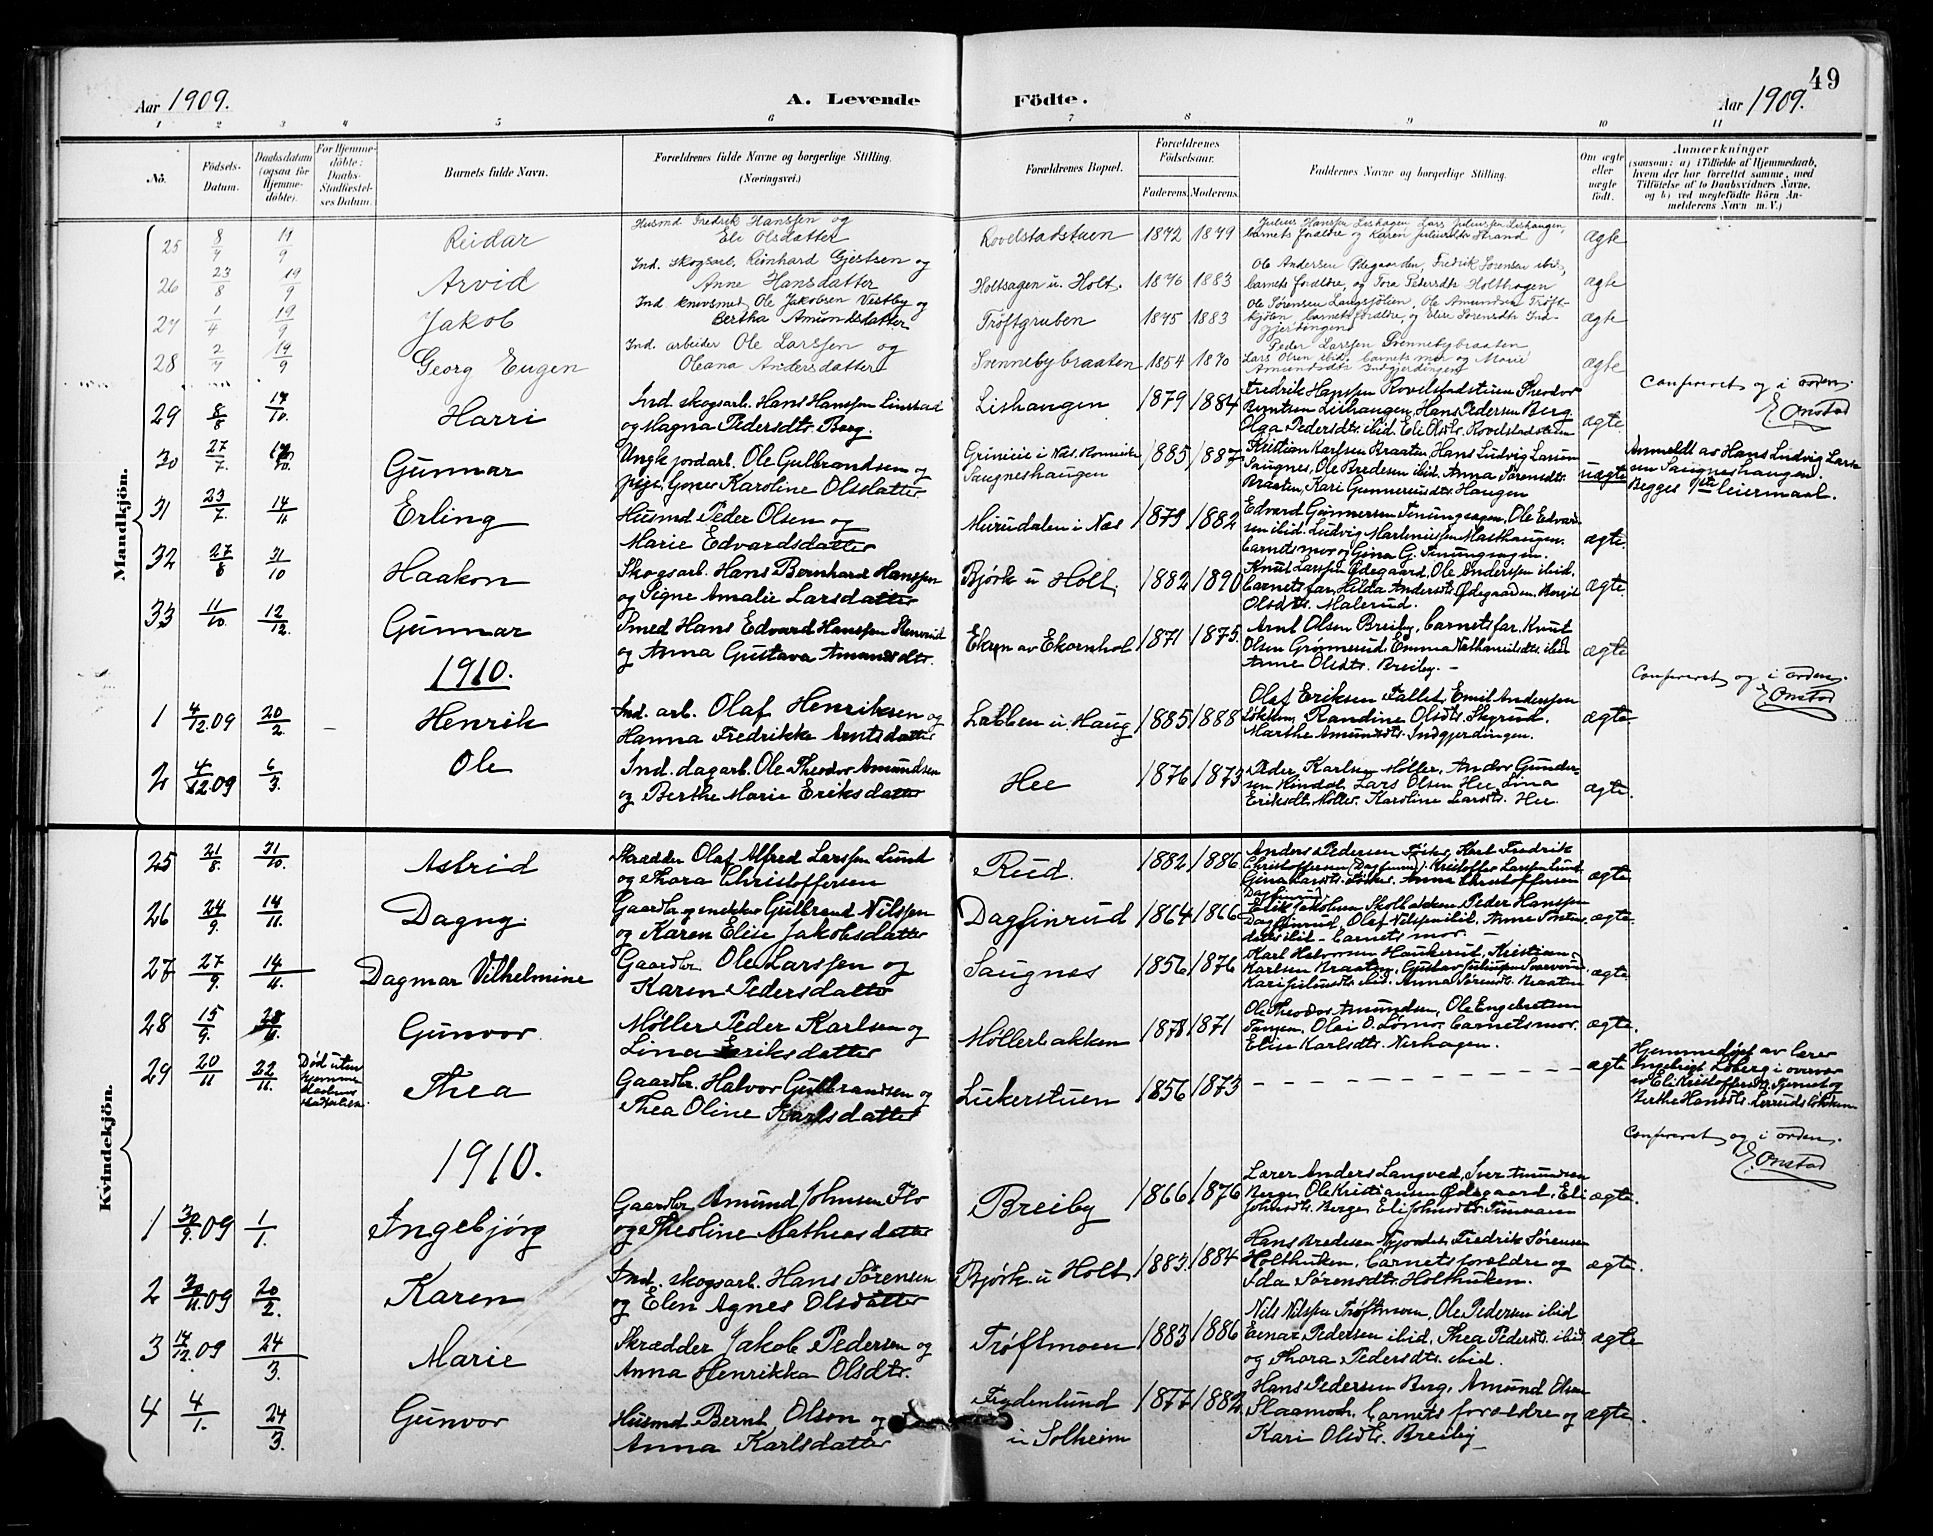 49
Aar 1909. A. Levende Födte. Aar 1909.
1 2 3 4 5 6 7 8 9 10 11
No. Födsels-Datum. Daabsdatum (ogsaa for Hjemme-döbte). For Hjemme-döbte: Daabs-Stadfæstel-ses Datum. Barnets fulde Navn. Forældrenes fulde Navne og borgerlige Stilling. (Næringsvei.) Forældrenes Bopæl. Forældrenes Födselsaar. Faderens. Moderens. Faddernes Navne og borgerlige Stilling. Om ægte eller uægte födt. Anmærkninger (saasom: a) i Tilfælde af Hjemmedaab, hvem der har forrettet samme, med Tilföielse af to Daabsvidners Navne, og b) ved uægtefödte Börn An-melderens Navn m. V.)
Mandkjön.
25 8/7 11/9 Reidar Husmd Fredrik Hanssen og
Eli Olsdatter Rovelstadstuen 1842 1849 Julius Hanssen Lishagen, Lars Juliussen Lishaugen,
barnets forældre og Karen Strand ægte
26 23/8 19/9 Arvid Ind. skogsarb. Reinhard Gjestsen og
Anne Hansdatter Holtsagen u. Holt. 1876 1883 Ole Andersen Ødegaarden, Fredrik Sørensen ibid,
barnets forældre, og Tora Pedersdtr Holthagen ægte
27 1/4 19/9 Jakob Ind. Ole Jakobsen Vestby og
Bertha Amundsdatter Trøftgruben 1875 1883 Ole Sørensen Langsjölien, Ole Amundsen Trøft-
kjølen barnets forældre, og Sørensdtr Ind-
gjerdingen ægte
28 2/7 19/9 Georg Eugen Ind. arbeider Ole Larssen og
Oleana Andersdatter Svennebybraaten 1854 1870 Peder Larssen Svennebybraaten
Lars Olsen ibid. barnets mor og Marie
Amundsdtr Indgjerdingen ægte
29 8/8 17/10. Harri Ind. skogsarb. Hans Hanssen Linstad
og Magna Pedersdtr. Berg. Lishaugen 1879 1884 Fredrik Hanssen Rovelstadstuen Theodor
Berntsen Lishaugen, Hans Pedersen Berg
Olga Pedersdtr. ibid. Eli Olsdtr. Rovelstadstuen ægte. Confereret og i orden.
E. Onstad
30 27/7. Gunnar Ungk. jordarb. Ole Gulbrandsen og
pige Karoline Olsdatter i Nes. Romerike
Saugneshaugen 1885 1887 Kristian Karlsen Braaten, Hans Ludvig Larsen
Saugnes, Ole Bredesen ibid. Anna Sørensdtr
Braaten, Kari Gunneriusdtr Haugen uægte Anmeldt av Hans Ludvig Lars-
sen Saugneshaugen.
Begges 1ste leiermaal.
31 23/7. 14/11 Erling Husmd Peder Olsen og
Marie Edvardsdatter i Næs 1879 1882 Edvard Gunnersen Ole Edvard-
sen ibid. Ludvig Martiniussen Masthaugen.
barnets mor og Gina G. ægte.
32 27/8 31/10 Haakon Skogsarb. Hans Bernhard Hanssen
og Signe Amalie Larsdatter Bjørk u Holt 1882 1890 Knut Larssen Ødegaard, Ole Anderssen ibid.
barnets far, Hilda Andersdtr. Ødegaarden,
Olsdtr. Malerud. ægte.
33 11/10. 12/12. Gunnar Smed Hans Edvard Hanssen
og Anna Gustava Amundsdtr. Ekren av Ekornhol 1871 1875. Arnt Olsen Breiby, barnets far. Knut
Olsen Grønnerud, Emma Nathanielsdtr. ibid
Anne Olsdtr. Breiby. — ægte
1910. Confereret og i orden.
E. Onstad
1 4/12.09 20/2 — Henrik Ind. arb. Olaf Henriksen og
Hanna Fredrikke Arntsdatter Labben u. Haug 1885 1888 Olaf Eriksen Fallet, Emil Anderssen
Løkken, Randine Olsdtr. Skyrud.
Marthe Amundsdtr. Indgjerdingen. ægte.
2 4/12 09 6/3. Ole Ind. dagarb. Ole Theodor Amundsen
og Berthe Marie Eriksdatter Hee 1876 1873 Peder Karlsen Møller, Gunder-
sen Lars Olsen Hee, Lina
Eriksdtr. Møller. Karoline Larsdtr. Hee. ægte.
Kvindekjön.
25 21/8. 31/10. Astrid Skrædder Olaf Alfred Larssen Lund
og Thora Christoffersen Rud. 1882 1886 Anders Pedersen Karl Fredrik
Christoffersen (Dagfinrud). Kristoffer Larssen Lund
Gina Larsdtr. Anna Christoffersen
Dagfinrud ægte.
26 24/9. 14/11. Dagny. Gaardbr. og snekker Gulbrand Nilssen
og Karen Elise Jakobsdatter Dagfinrud 1864 1866 Erik Jakobsen Skolbakken Peder Hanssen
Dagfinrud, Olaf Nilssen ibid, Anne
datter ibid — barnets mor. — ægte.
27 27/9. 14/11. Dagmar Vilhelmine Gaardbr Ole Larssen og
Karen Pedersdatter Saugnes 1856 1876 Karl Halvorsen Haukerud, Kristian
Karlsen Braaten, Gustav Juliussen
Kari Juliusdtr ibid. Anna Sørensdtr. Braaten ægte.
28 15/9. 28/11. Gunvor Møller Peder Karlsen og
Lina Eriksdatter Møllerbakken 1878 1871 Ole Theodor Amundsen, Ole Engebretsen
Tangen, Olai O. Lømo, barnets mor.
Elise Karlsdtr. Nerhagen. ægte.
29 20/11 22/11. Død uten
hjemme-
daabens
stadfæstelse. Thea Gaardbr. Halvor Gulbrandsen og
Thea Oline Karlsdatter Lukerstuen 1856 1873 — — — ægte Hjemmedøpt av lærer
Ingebrigt Loberg i overvær
av Eli Kristoffersdtr. og
Berthe Hansdtr. Løkken
1910. Confereret og i orden.
E. Onstad
1 30/9.09 1/1. Ingebjörg Gaardbr. Amund Johnsen Flo
og Theoline Mathiasdatter Breiby 1866 1876 Lærer Anders Langved, Iver Amundsen
Berger, Ole Kristiansen Ødegaard, Eli
Johnsdtr. Berger Eli Johnsdtr. ægte.
2 30/11.09 20/2. Karen Ind. skogsarb. Hans Sørensen
og Elen Agnes Olsdatter Bjørk. u Holt 1883. 1884 Hans Bredesen Fredrik Sørensen
Holthuken, barnets forældre og
Ida Sørensdtr. Holthuken. ægte.
3 17/12.09 24/3. Marie Skrædder Jakob Pedersen og
Anna Henrikka Olsdtr. Trøftmoen 1883 1886 Nils Nilssen Trøftmoen, Ole Pedersen ibid
Einar Pedersen ibid, Thea Pedersdtr. ibid
og Thora Pedersdtr. ibid. ægte
4 4/1. 24/3. Gunvor Husmd. Bernt Olsen og
Anna Karlsdatter Frydenlund
u Solheim 1877 1882 Hans Pedersen Berg, Amund Olsen
Slaamoen, barnets forældre og
Kari Olsdtr. Breiby ægte.